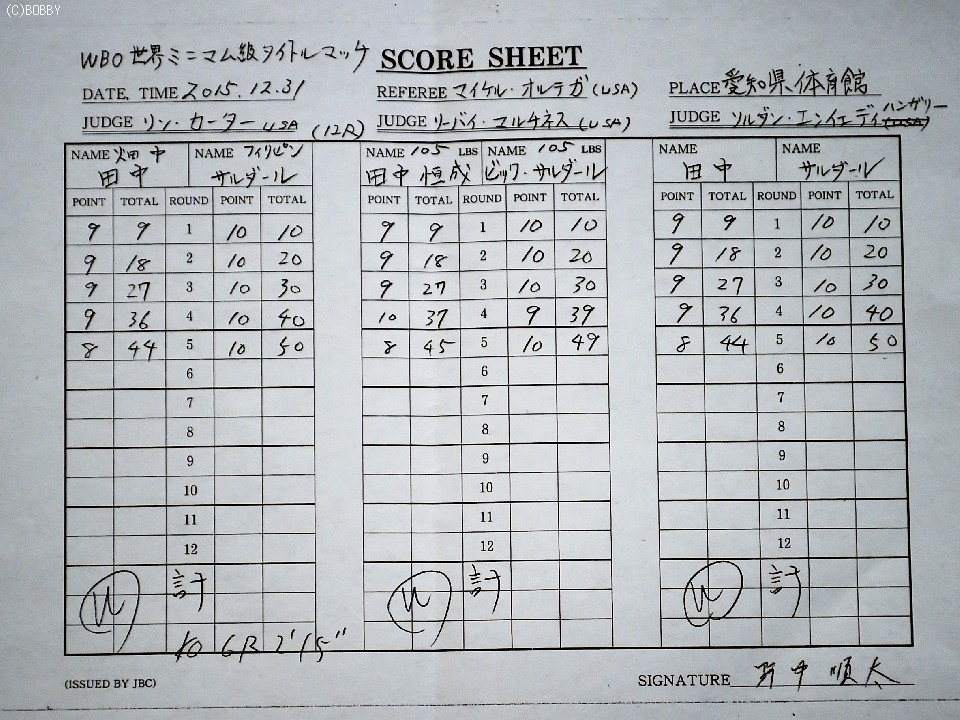 (C)BOBBY
WBO世界ミニマム級タイトルマッチ SCORE SHEET
DATE, TIME 2015.12.31 REFEREE マイケル・オルテガ(USA) PLACE 愛知県体育館
JUDGE リン・カーター USA (12R) JUDGE リーバイ・マルチネス(USA) JUDGE ソルダン・エンイェディ ハンガリー (USA)
NAME 畑中 NAME フィリピン NAME 105 LBS NAME 105 LBS NAME NAME
田中 サルダール 田中恒成 ビック・サルダール 田中 サルダール
POINT TOTAL ROUND POINT TOTAL POINT TOTAL ROUND POINT TOTAL POINT TOTAL ROUND POINT TOTAL
9 9 1 10 10 9 9 1 10 10 9 9 1 10 10
9 18 2 10 20 9 18 2 10 20 9 18 2 10 20
9 27 3 10 30 9 27 3 10 30 9 27 3 10 30
9 36 4 10 40 10 37 4 9 39 9 36 4 10 40
8 44 5 10 50 8 45 5 10 49 8 44 5 10 50
6 6 6
7 7 7
8 8 8
9 9 9
10 10 10
11 11 11
12 12 12
計 計 計
KO 6R 2'15"
(ISSUED BY JBC) SIGNATURE 野中順太